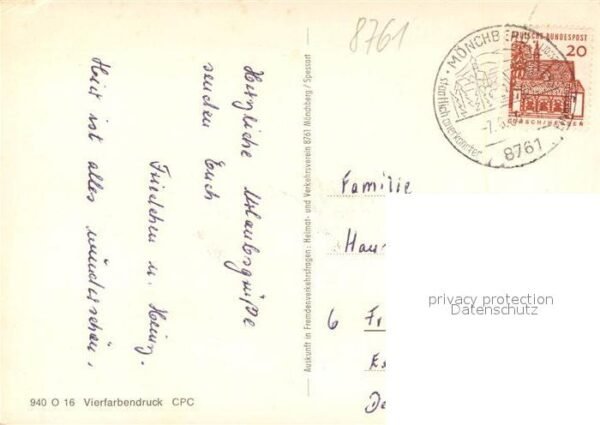 8761
MÖNCHBERG
staatlich anerkannter
-7.
8761
DEUTSCHE BUNDESPOST
20
LORSCH/HESSEN
Herzliche Urlaubsgrüße
senden Euch
Friedchen u. Heinz.
Hier ist alles wunderschön.
Auskunft in Fremdenverkehrsfragen: Heimat- und Verkehrsverein 8761 Mönchberg / Spessart
Familie
Haus
6 F
Es
De
privacy protection
Datenschutz
940 O 16 Vierfarbendruck CPC